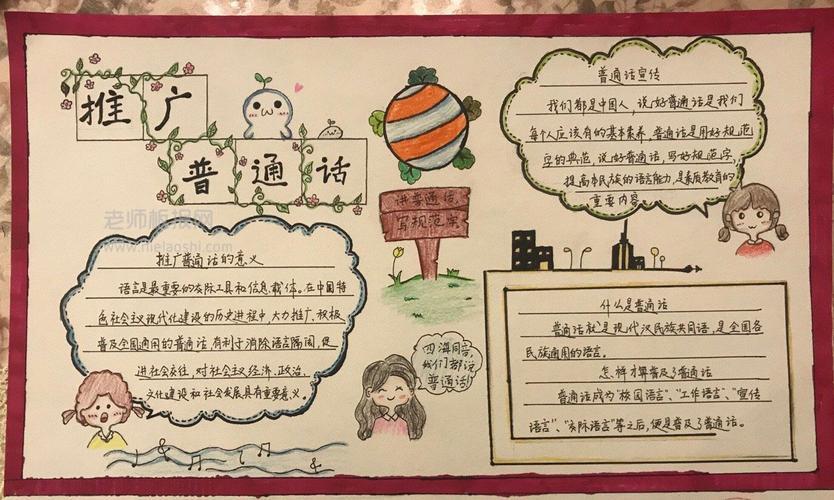 推广
普通话
老师板报网
www.nielaoshi.com
推广普通话的意义
语言是最重要的交际工具和信息载体。在中国特
色社会主义现代化建设的历史进程中,大力推广、积极
普及全国通用的普通话,有利于消除语言隔阂,促
进社会交往,对社会主义经济、政治、
文化建设和社会发展具有重要意义。
讲普通话
写规范字
四海同音,
我们都说
普通话!
普通话宣传
我们都是中国人,说好普通话是我们
每个人应该有的基本素养,普通话是用好规范
字的典范。说好普通话,写好规范字,
提高市民族的语言能力,是素质教育的
重要内容。
什么是普通话
普通话就是现代汉民族共同语,是全国各
民族通用的语言。
怎样才算普及了普通话
普通话成为“校园语言”、“工作语言”、“宣传
语言”、“交际语言”等之后,便是普及了普通话。